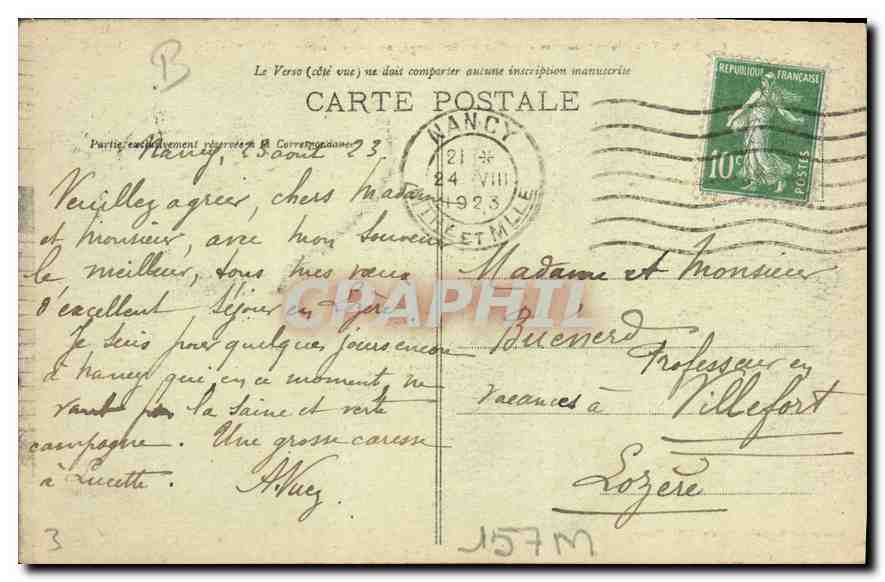 B
Le Verso (côté vue) ne doit comporter aucune inscription manuscrite
CARTE POSTALE
Partie exclusivement réservée à la Correspondance
Nancy, 23 août 23
Veuillez agréer, chers Madame
et Monsieur, avec mon souvenir
le meilleur, tous mes vœux
d'excellent séjour en Lozère.
Je suis pour quelques jours encore
à Nancy qui en ce moment ne
vaut pas la saine et verte
campagne. Une grosse caresse
à Lucette. A. Vucy
NANCY
21 *
24 VIII
1923
MTHE ET MLLE
REPUBLIQUE FRANÇAISE
10c
POSTES
Madame et Monsieur
Buenerd
Professeur en
vacances à Villefort
Lozère
GRAPHIL
3
157M